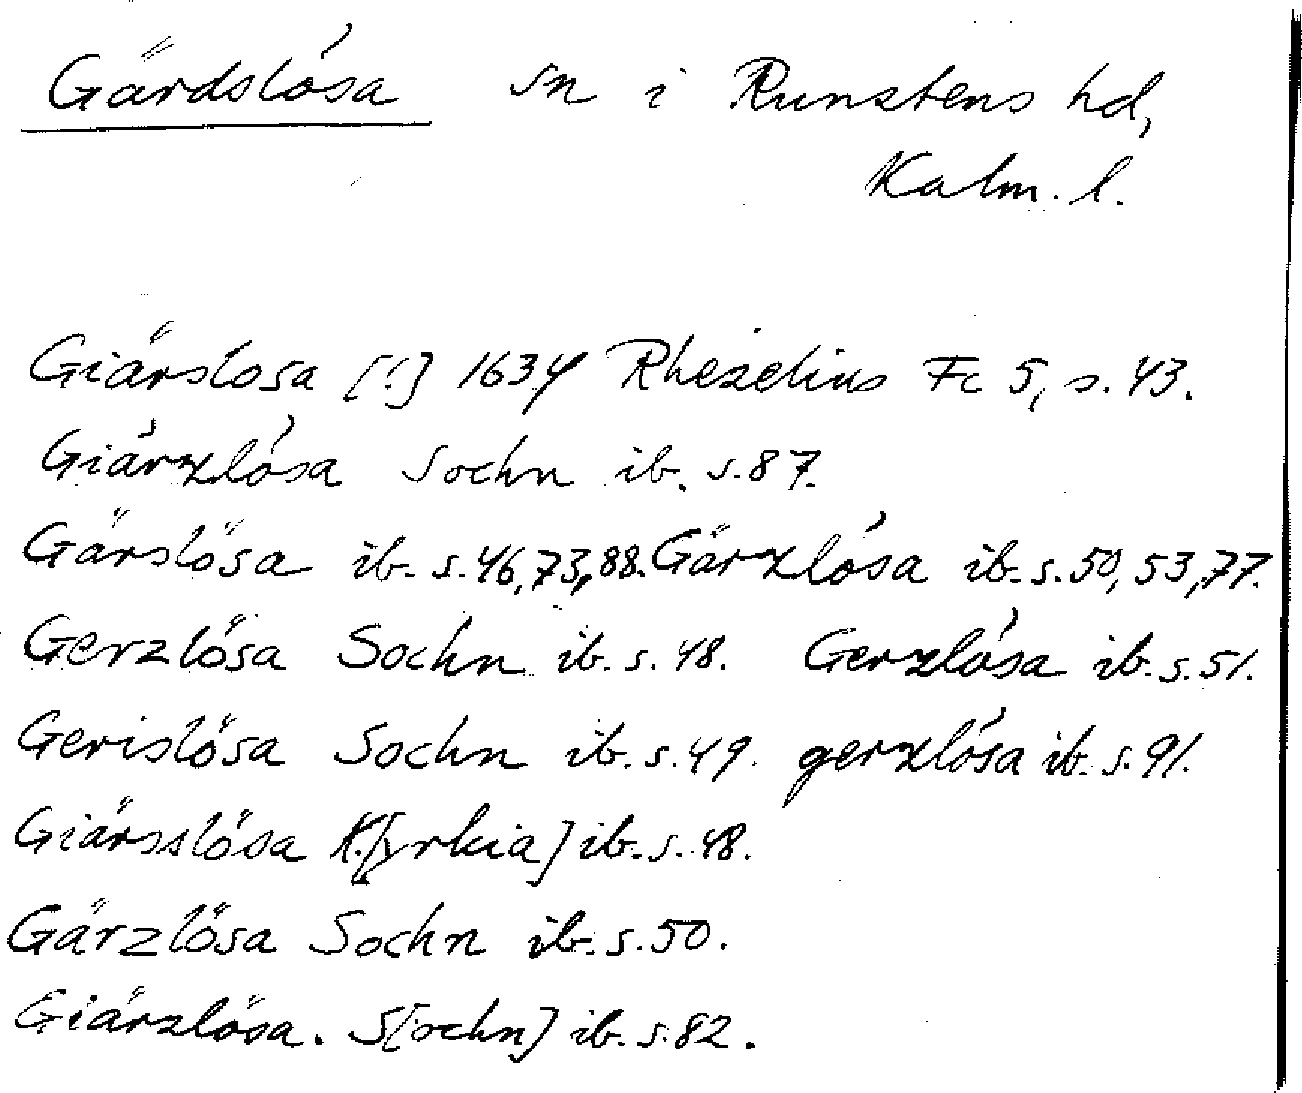 Gärdslösa sn i Runstens hd,
Kalm. l.
Giärslosa [!] 1634 Rhezelius Fc 5, s. 43.
Giärzlósa Sochn ib. s. 87.
Gärslösa ib. s. 46, 73, 88. Gärzlósa ib. s. 50, 53, 77.
Gerzlösa Sochn ib. s. 48. Gerzlósa ib. s. 51.
Gerislösa Sochn ib. s. 49. gerzlósa ib. s. 91.
Giärsslösa K[yrkia] ib. s. 48.
Gärzlösa Sochn ib. s. 50.
Giärzlösa. S[ochn] ib. s. 82.